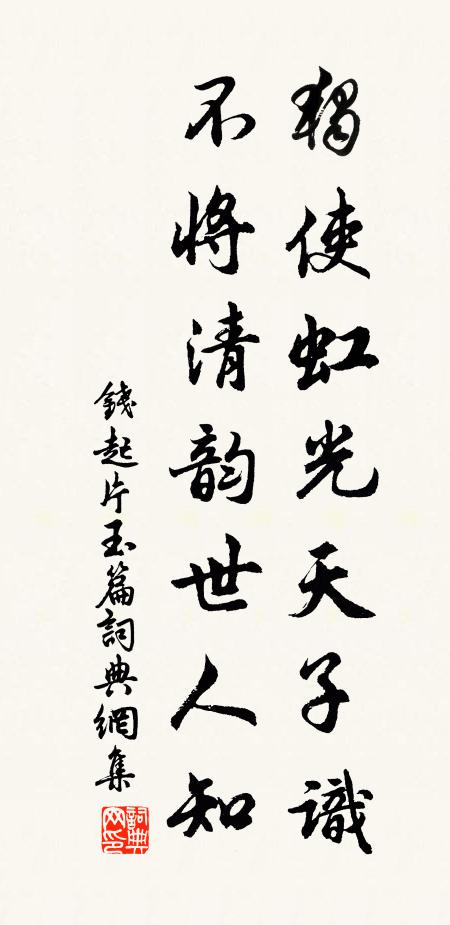 獨使虹光天子識
不將清韵世人知
錢起片玉篇詞典網集
詞典网印